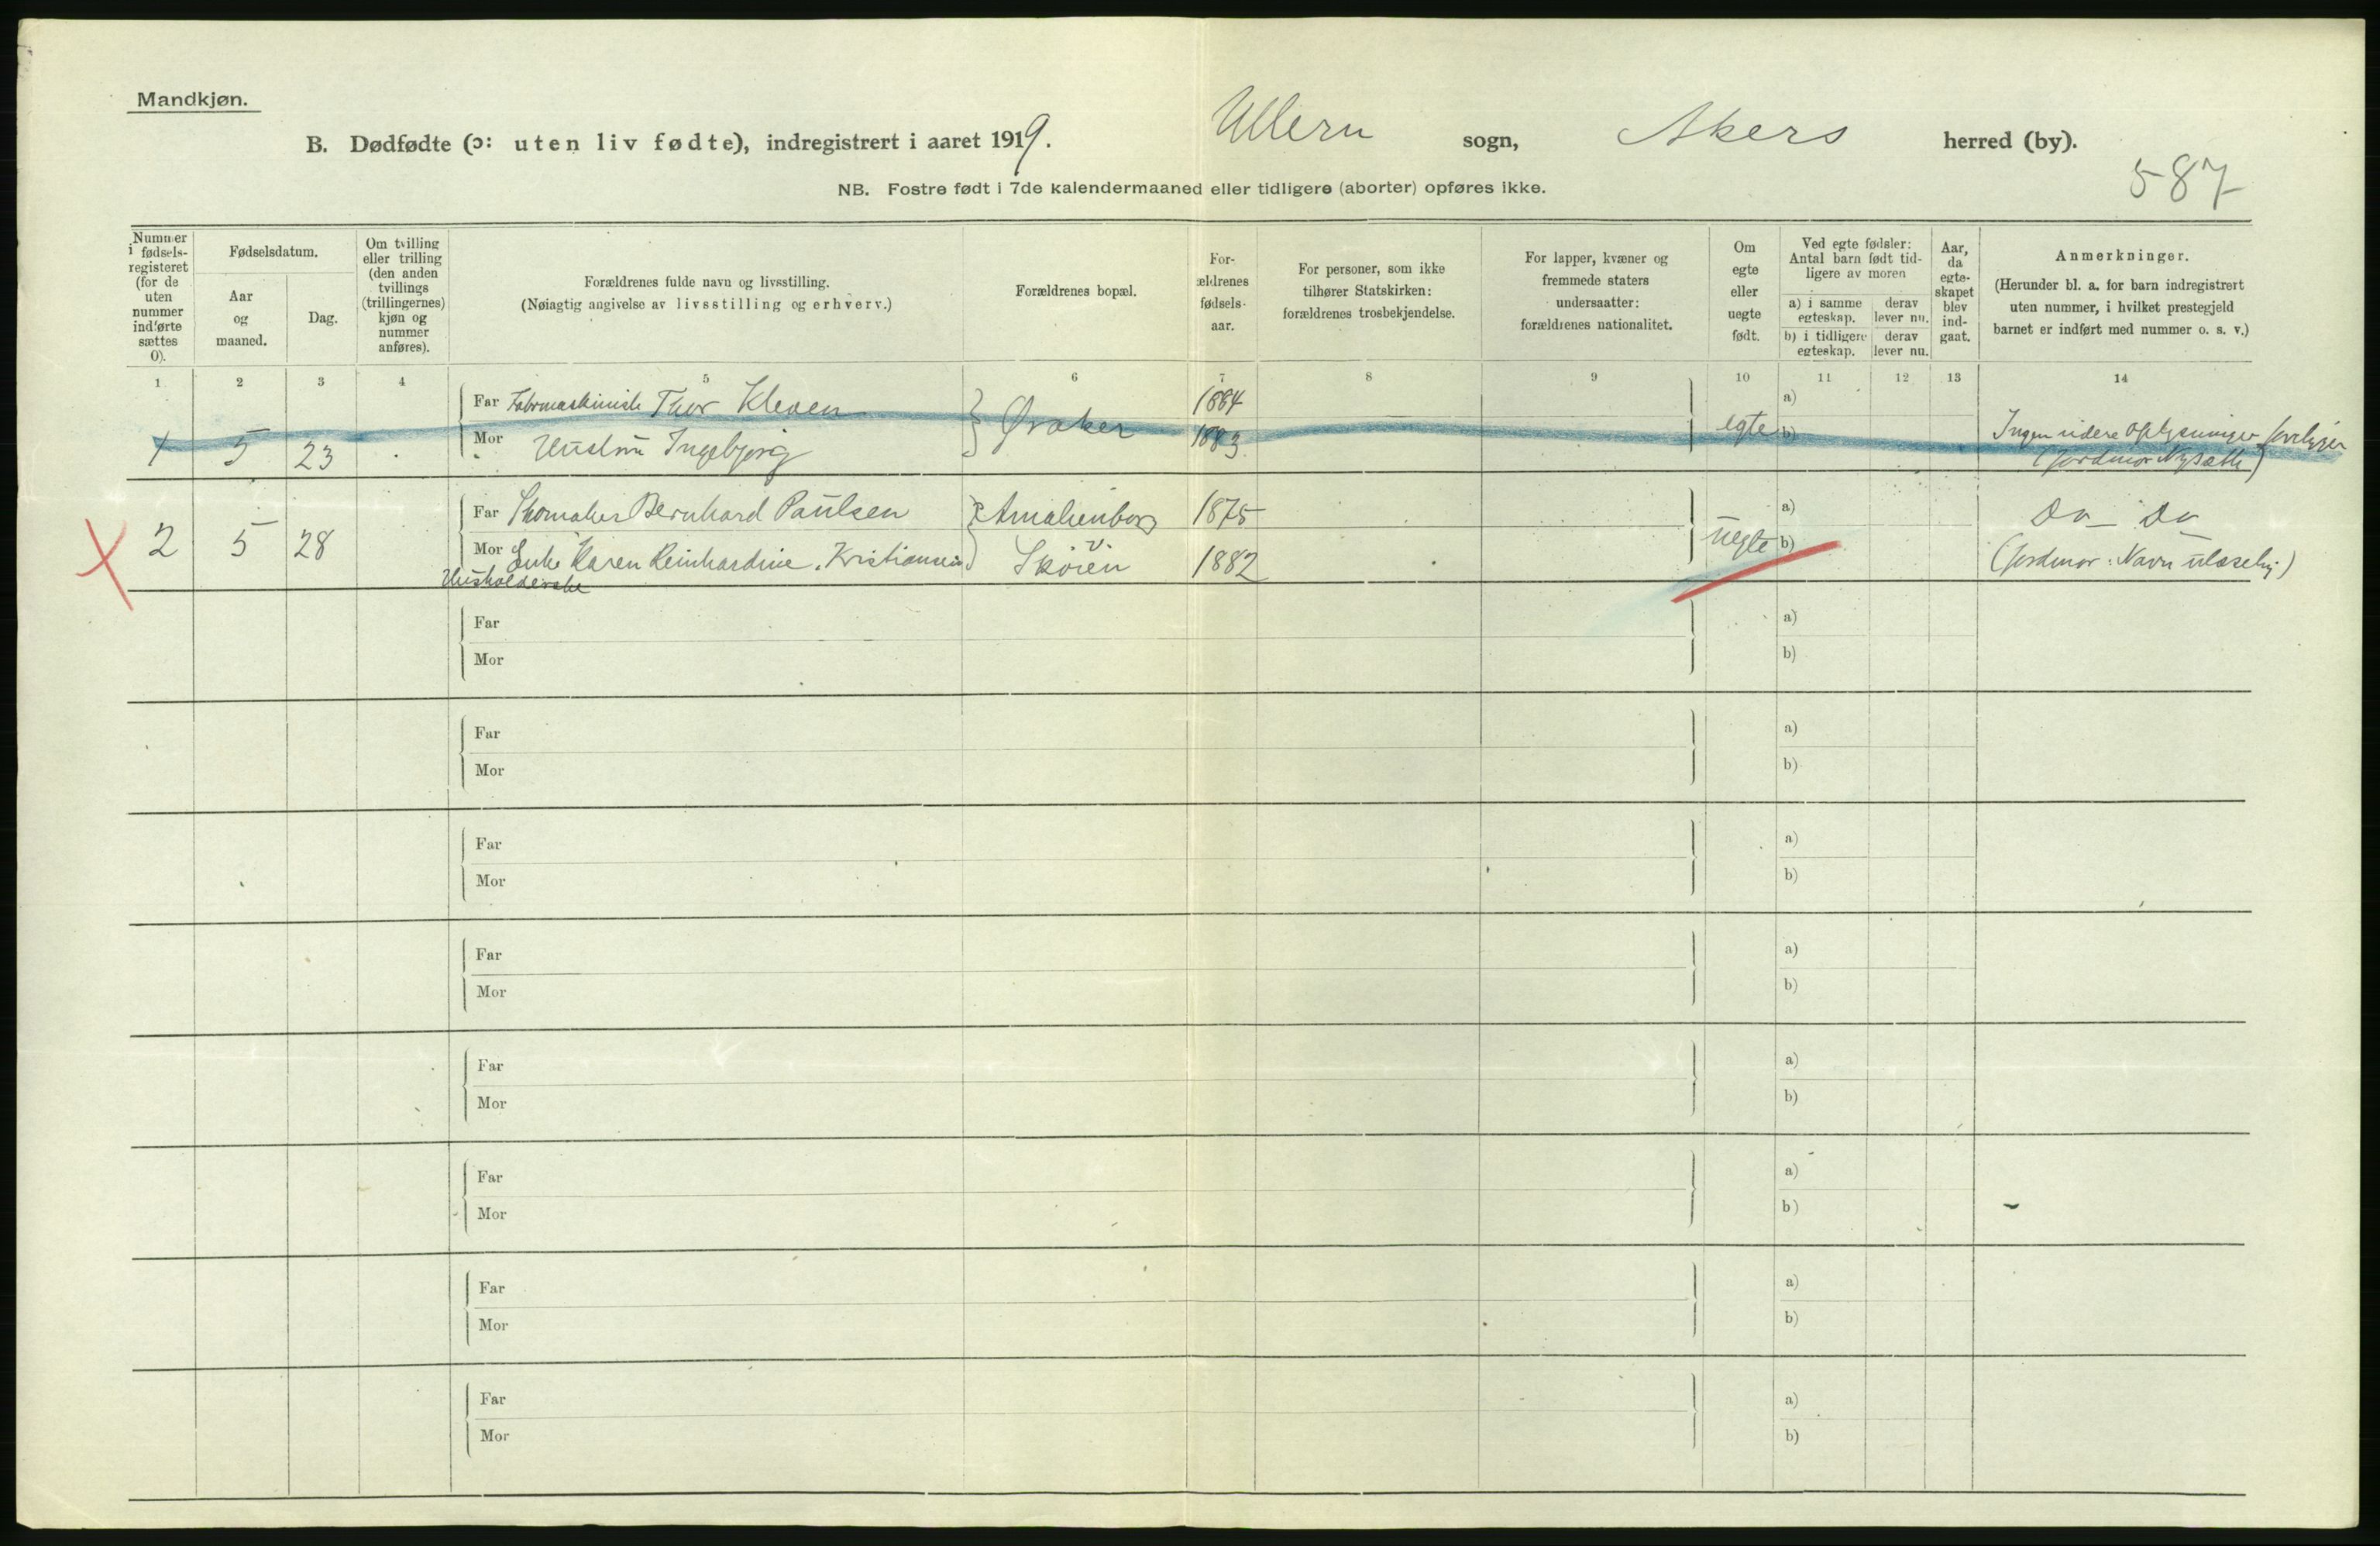 Mandkjøn.
B. Dødfødte (ɔ: uten liv fødte), indregistrert i aaret 1919. Ullern sogn, Akers herred (by).
587
NB. Fostre født i 7de kalendermaaned eller tidligere (aborter) opføres ikke.
Nummer i fødsels-registeret (for de uten nummer indførte sættes 0).
Fødselsdatum.
Aar og maaned.
Dag.
Om tvilling eller trilling (den anden tvillings (trillingernes) kjøn og nummer anføres).
Forældrenes fulde navn og livsstilling.
(Nøiagtig angivelse av livsstilling og erhverv.)
Forældrenes bopæl.
For-ældrenes fødsels-aar.
For personer, som ikke tilhører Statskirken: forældrenes trosbekjendelse.
For lapper, kvæner og fremmede staters undersaatter: forældrenes nationalitet.
Om egte eller uegte født.
Ved egte fødsler: Antal barn født tid-ligere av moren
a) i samme egteskap. derav lever nu.
b) i tidligere egteskap. derav lever nu.
Aar, da egte-skapet blev ind-gaat.
Anmerkninger.
(Herunder bl. a. for barn indregistrert uten nummer, i hvilket prestegjeld barnet er indført med nummer o. s. v.)
1 2 3 4 5 6 7 8 9 10 11 12 13 14
Far Thor Kleven 1884 a)
1 5 23 Mor Hustru Ingebjørg Øraker 1883 egte b) Ingen videre oplysninger foreligger
(jordmor Nysæth)
Far Thomas Bernhard Paulsen Amalienborg 1875 a) Do – Do
2 5 28 Mor Enke Karen Reinhardine Kristiansen v. Skøien 1882 uegte b) (jordmor: Navn ulæselig)
Husholderske
Far a)
Mor b)
Far a)
Mor b)
Far a)
Mor b)
Far a)
Mor b)
Far a)
Mor b)
Far a)
Mor b)
Far a)
Mor b)
Far a)
Mor b)